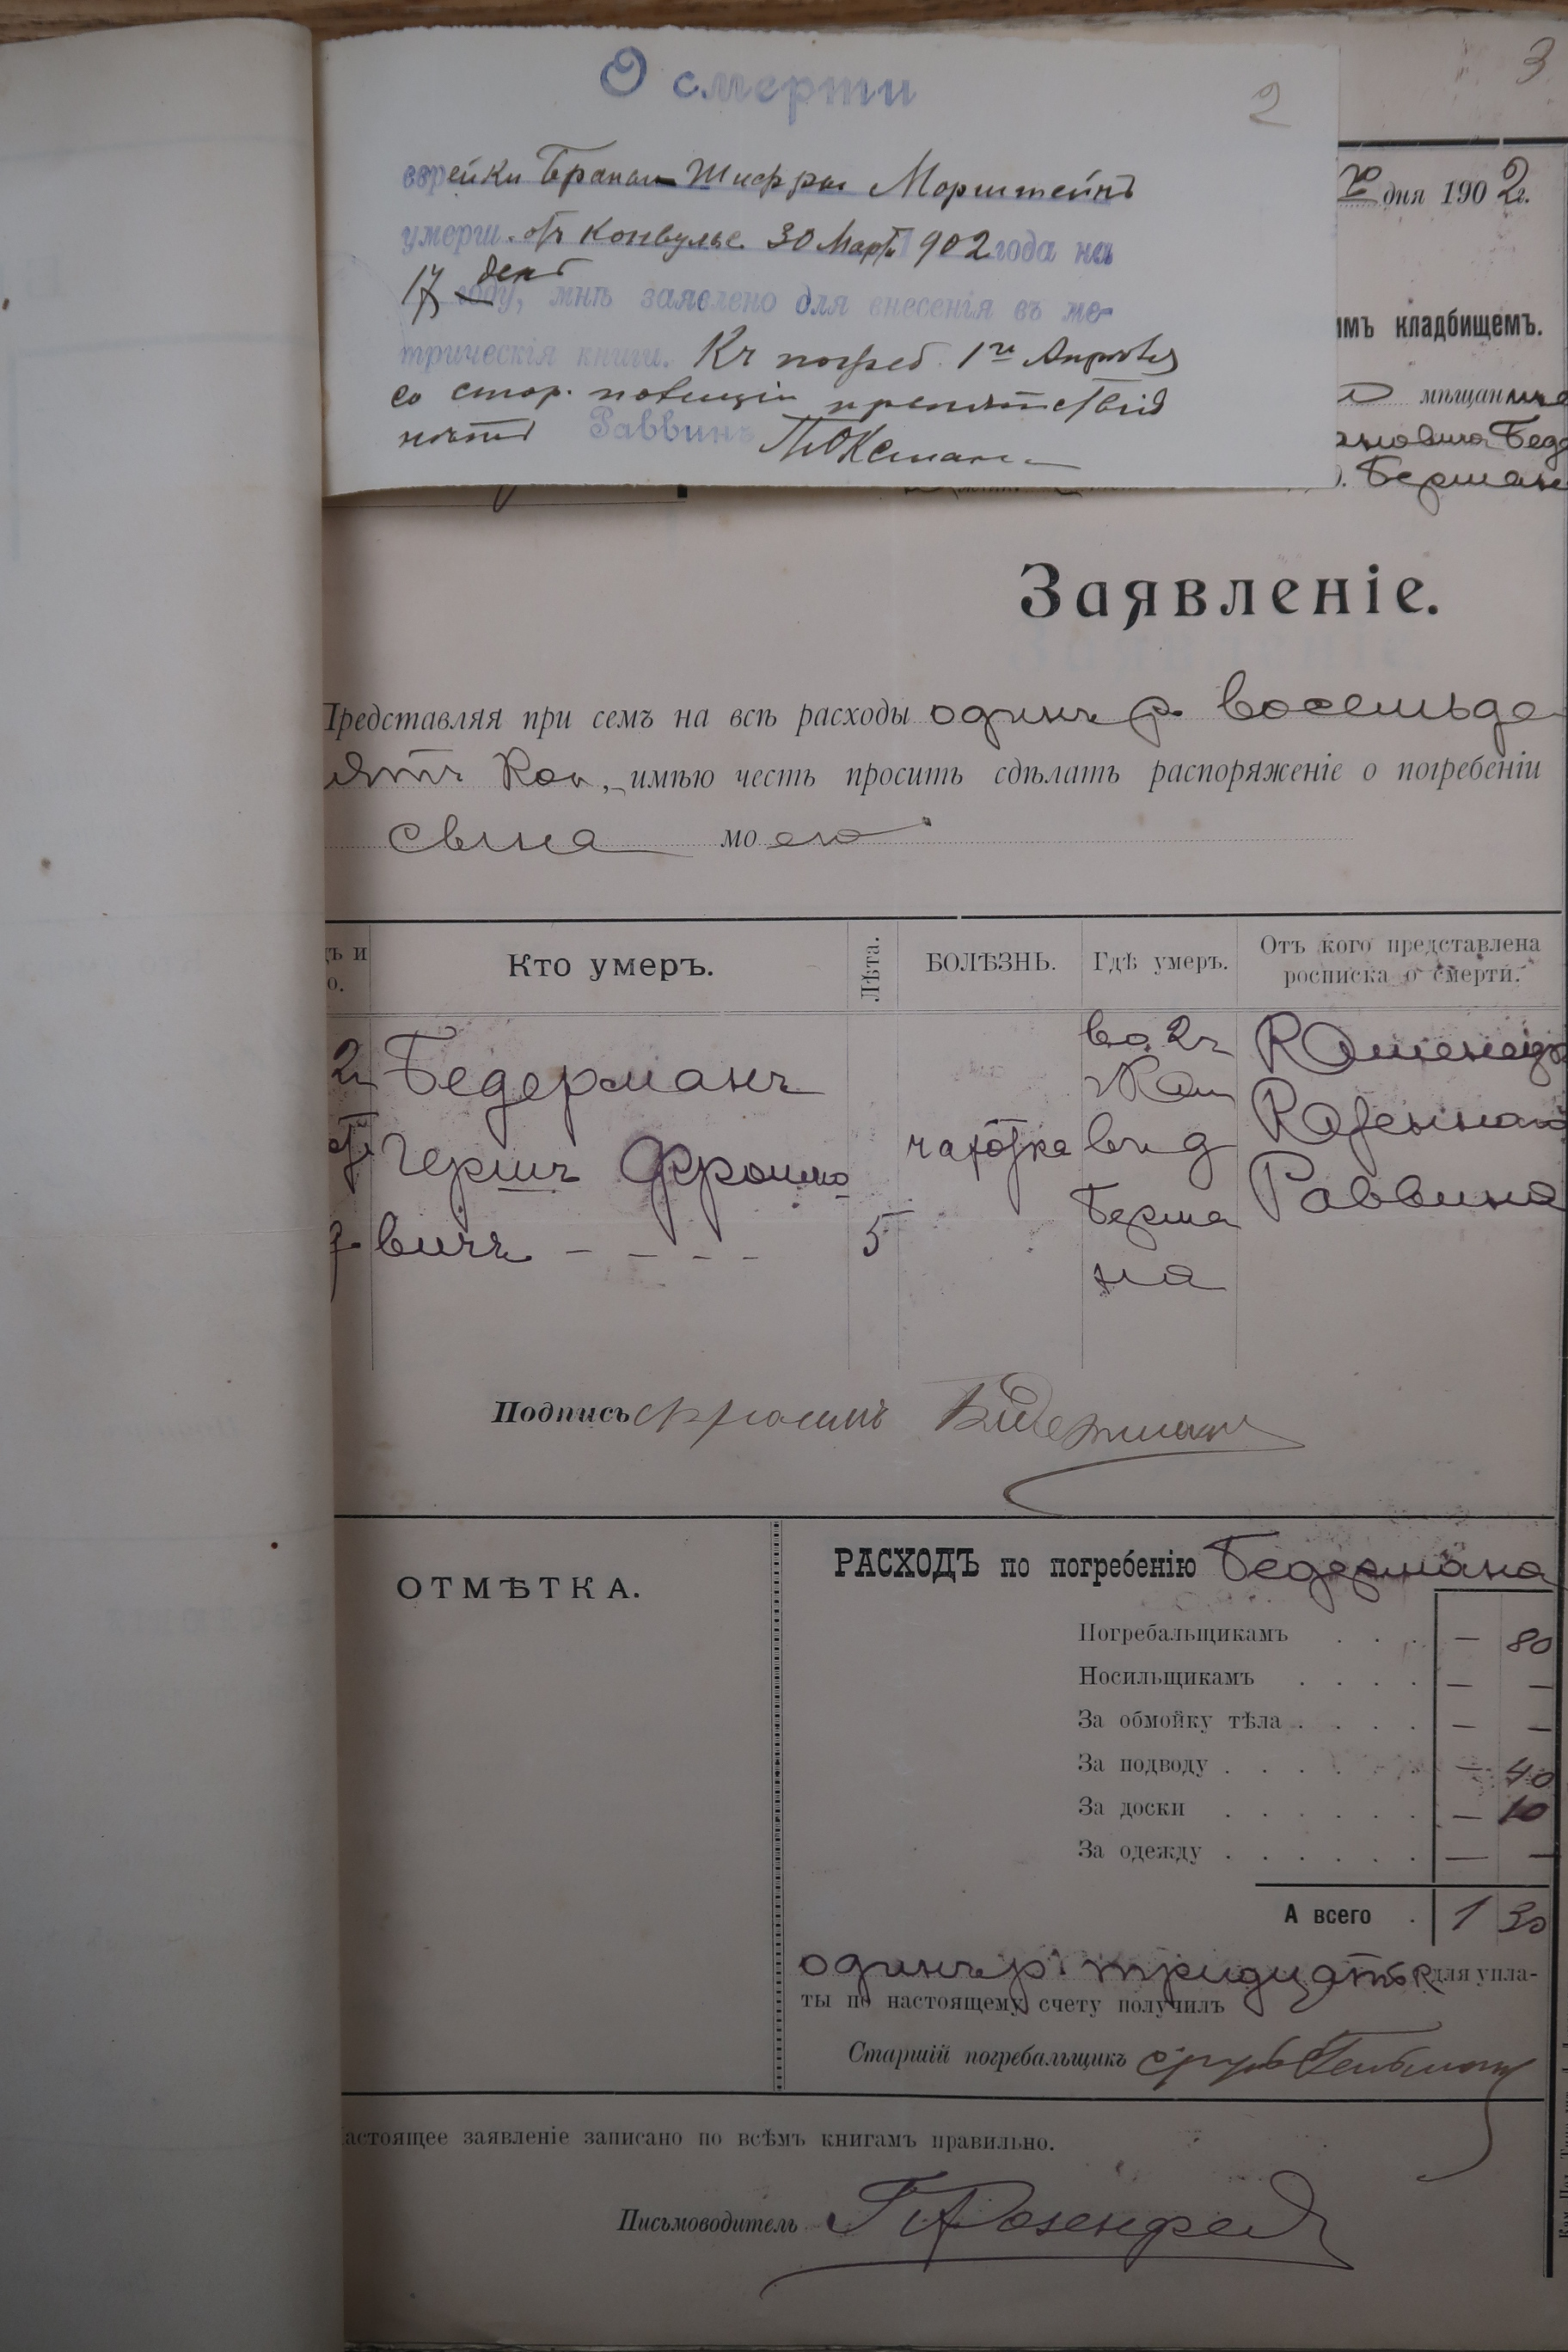 3
О смерти
2
еврейки Шифры Морштейнъ
умерш. отъ конвульс. 30 Март 1902 года на
17 день году, мнѣ заявлено для внесенія въ ме-
трическія книги. Къ погреб. 1го Апрѣля
со стор. полиціи препятствій
нѣтъ Раввинъ
дня 1902 г.
имъ кладбищемъ.
мѣщани
Берман
Заявленіе.
Представляя при семъ на всѣ расходы одинъ р. восемьде
сятъ коп, имѣю честь просить сдѣлать распоряженіе о погребеніи
сына моего
ъ и
о.
Кто умеръ.
Лѣта.
БОЛѢЗНЬ.
Гдѣ умеръ.
Отъ кого представлена
росписка о смерти.
Бедерманъ
Гершъ Фроимо
вичъ - - - -
5
чахотка
во 2ч
въ д
Берма
на
Раввина
Подпись Фроимъ Бидерман
ОТМѢТКА.
РАСХОДЪ по погребенію Бедермана
Погребальщикамъ . . . — 80
Носильщикамъ . . . . — —
За обмойку тѣла . . . . — —
За подводу . . . . . — 40
За доски . . . . . . — 10
За одежду . . . . . . — —
А всего . 1 30
одинъ р. тридцать к для упла-
ты по настоящему счету получилъ
Старшій погребальщикъ
астоящее заявленіе записано по всѣмъ книгамъ правильно.
Письмоводитель Розенфельд